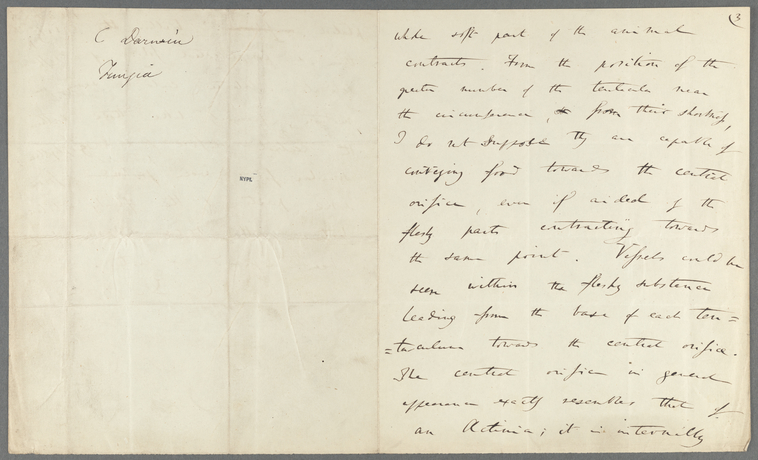 C Darwin
Fungia
NYPL
3
whole soft part of the animal
contracts. From the position of the
greater number of the tentacula near
the circumference, & from their shortness,
I do not suppose they are capable of
conveying food towards the central
orifice, even if aided by the
fleshy parts contracting towards
the same point. Vessels could be
seen within the fleshy substance
leading from the base of each ten=
=taculum towards the central orifice.
The central orifice in general
appearance exactly resembles that of
an Actinia; it is internally